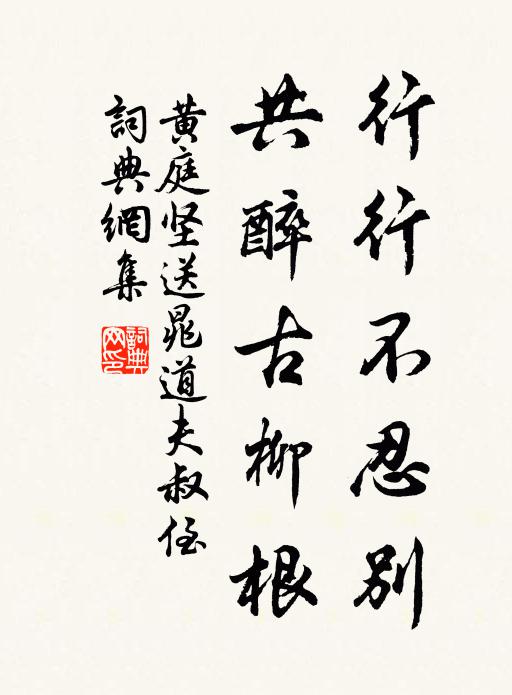 行行不忍別
共醉古柳根
黄庭坚送晁道夫叔侄
詞典網集
詞典网印